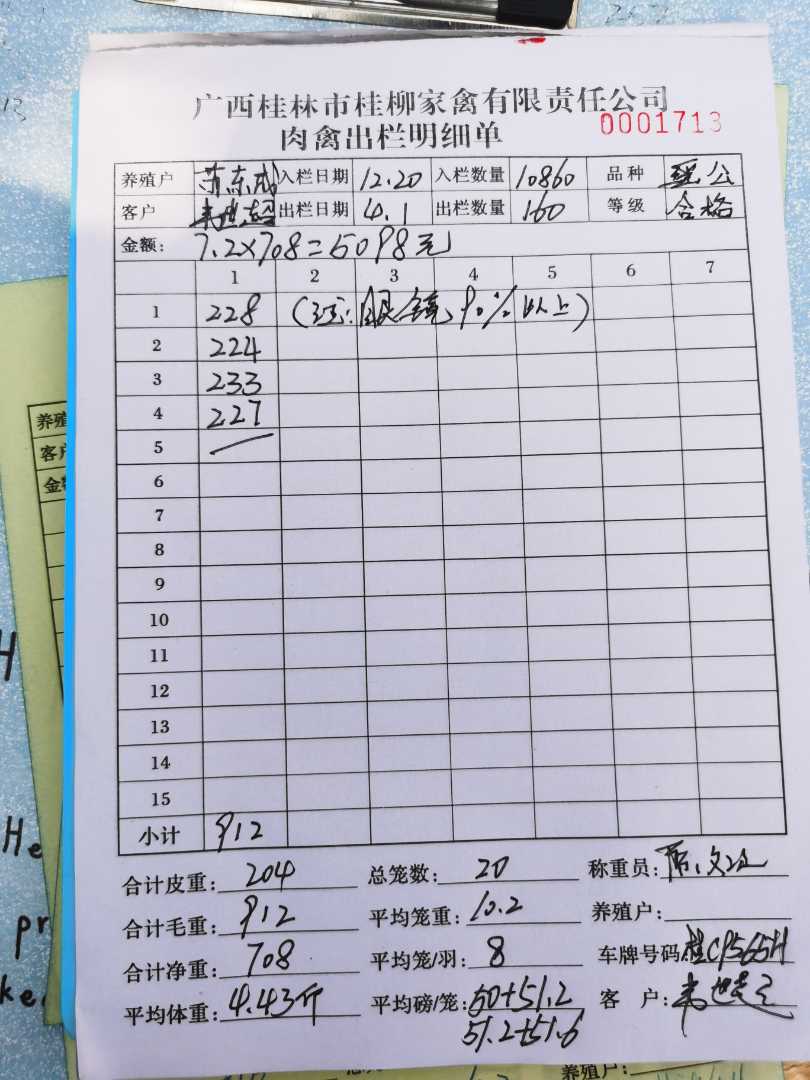 广西桂林市桂柳家禽有限责任公司
肉禽出栏明细单 0001713
养殖户 苏东成 入栏日期 12.20 入栏数量 10860 品种 瑶公
客户 韦世超 出栏日期 4.1 出栏数量 160 等级 合格
金额: 7.2×708=5098元
1 2 3 4 5 6 7
1 228 (注:眼镜90%以上)
2 224
3 233
4 227
5
6
7
8
9
10
11
12
13
14
15
小计 912
合计皮重: 204 总笼数: 20 称重员:
合计毛重: 912 平均笼重: 10.2 养殖户:
合计净重: 708 平均笼/羽: 8 车牌号码 桂CP565H
平均体重: 4.43斤 平均磅/笼: 50+51.2 客 户:
51.2+51.6
养殖
客户
金
He
pr
ke
养殖户: